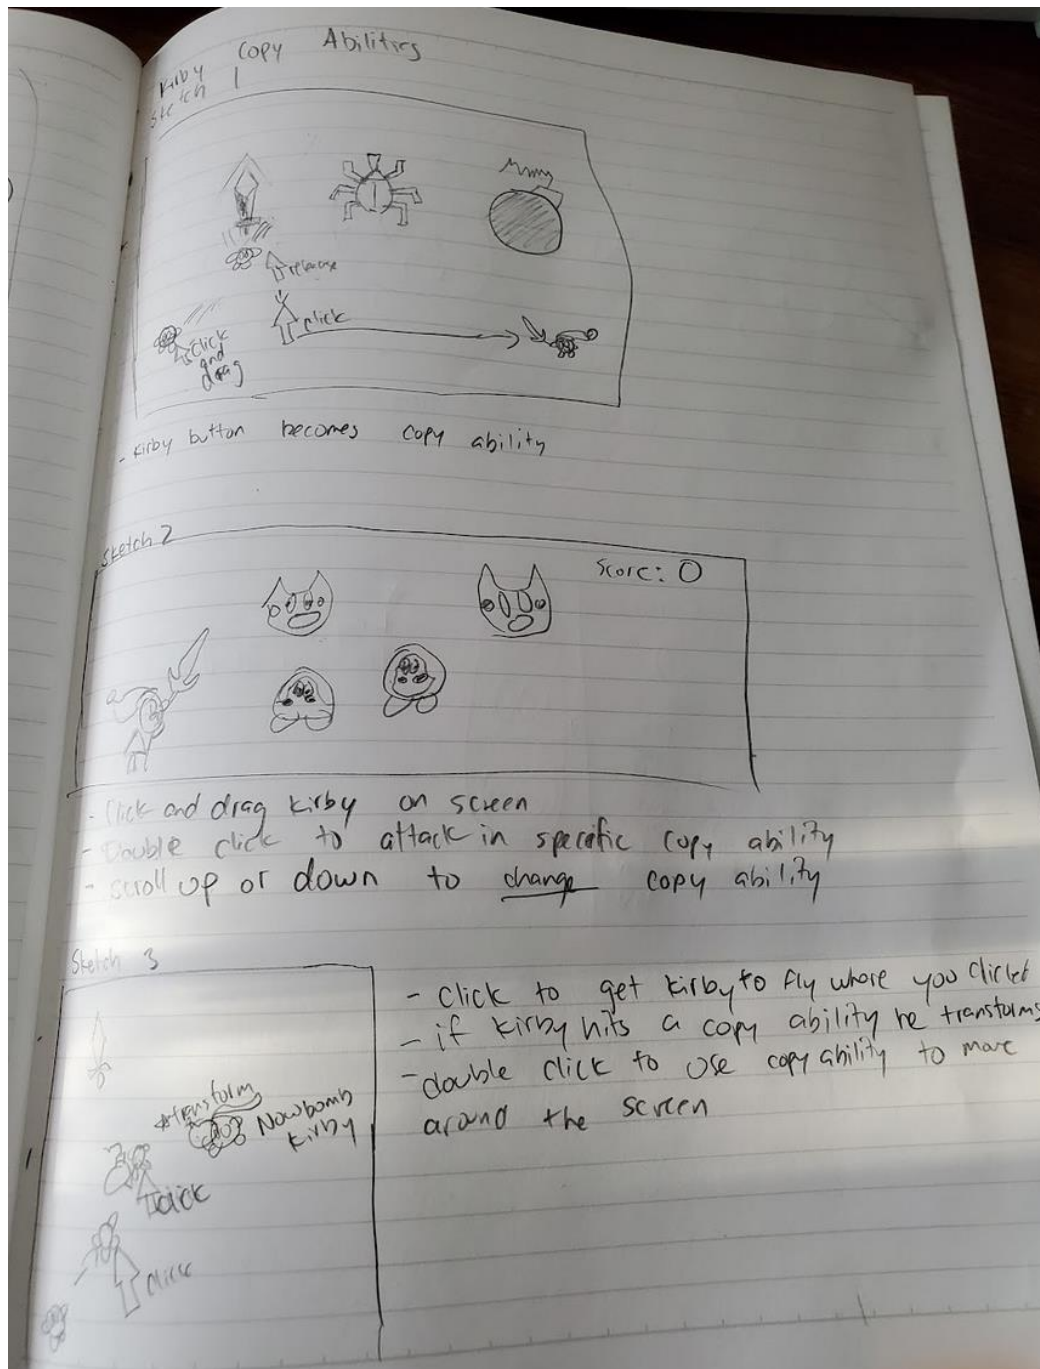 Kirby Copy Abilities
Sketch 1
release
click
click
and
drag
- Kirby button becomes copy ability
Sketch 2
Score: 0
- Click and drag kirby on screen
- Double click to attack in specific copy ability
- scroll up or down to change copy ability
Sketch 3
- click to get kirby to fly where you clicked
- if kirby hits a copy ability he transforms
- double click to use copy ability to move
around the screen
transform
Now bomb
kirby
click
click